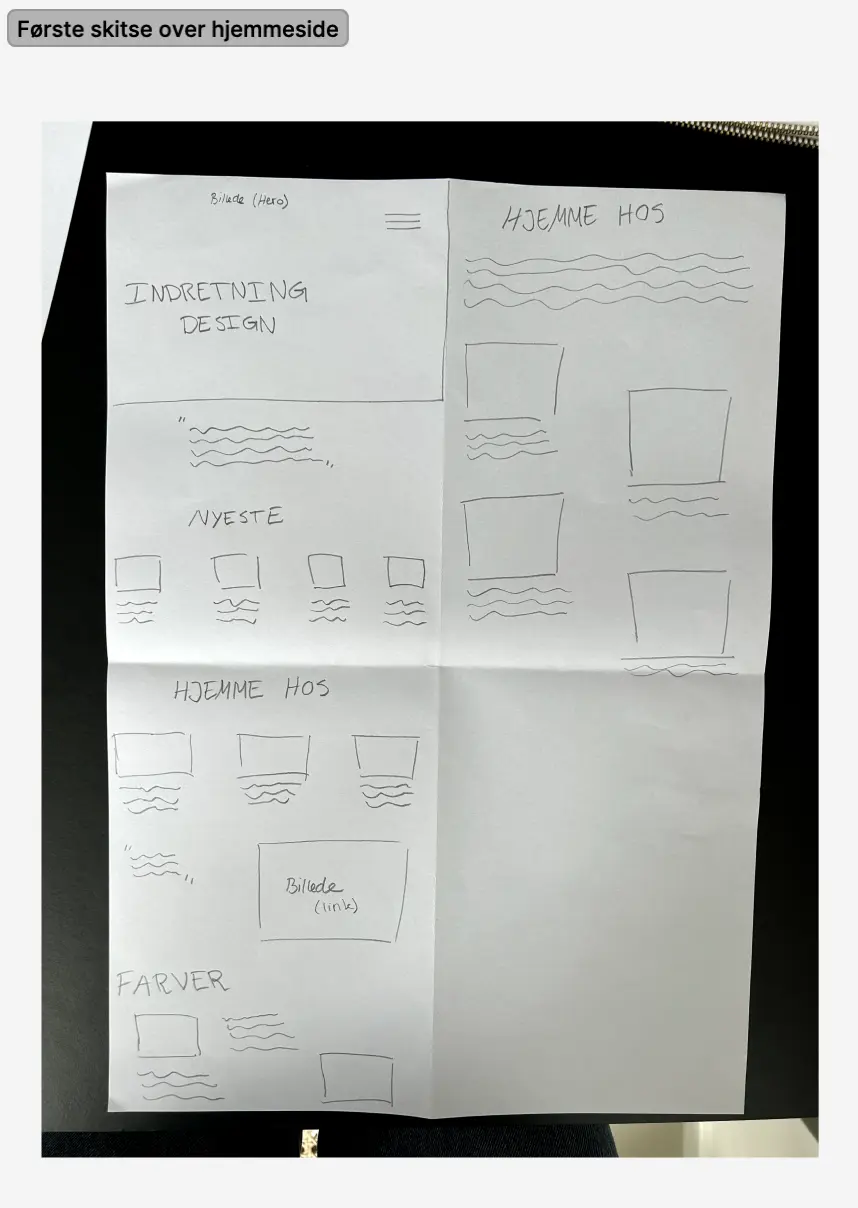 Første skitse over hjemmeside
Billede (Hero)
INDRETNING
DESIGN
NYESTE
HJEMME HOS
Billede
(link)
FARVER
HJEMME HOS